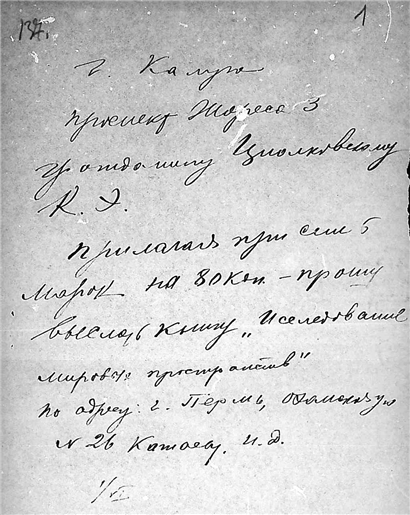 137. 1
г. Калуга
проспект Жореса 3
гражданину Циолковскому
К. Э.
Прилагая при сем 5
марок на 80 коп. – прошу
выслать книгу „Иследование
мировых пространств"
по адресу: г. Пермь,
№ 26 Катаеву, И. Д.
1/VI